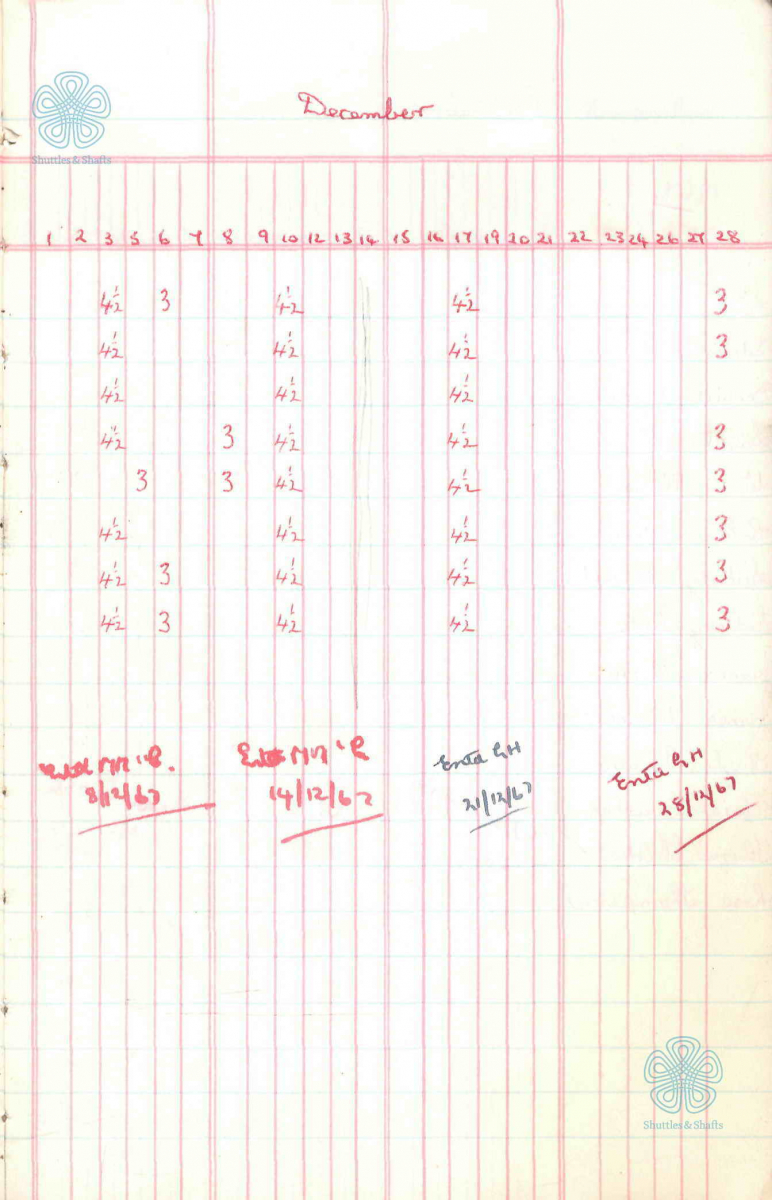 December
Shuttles & Shafts
1 2 3 5 6 7 8 9 10 12 13 14 15 16 17 19 20 21 22 23 24 26 27 28
4½ 3 4½ 4½ 3
4½ 4½ 4½ 3
4½ 4½ 4½
4½ 3 4½ 4½ 3
3 3 4½ 4½ 3
4½ 4½ 4½ 3
4½ 3 4½ 4½ 3
4½ 3 4½ 4½ 3
8/12/67
14/12/67
GH
21/12/67
GH
28/12/67
Shuttles & Shafts